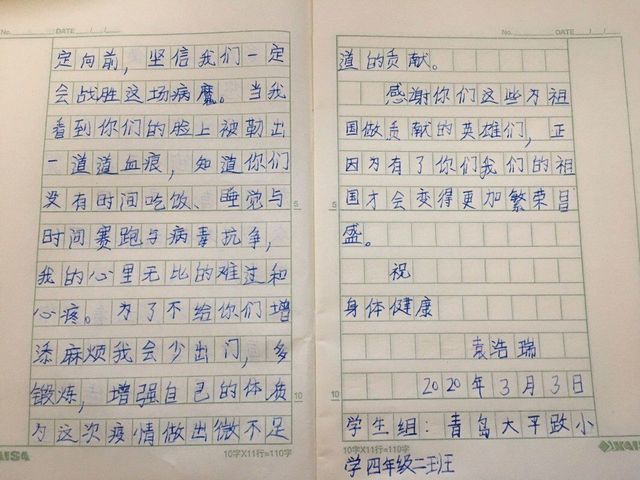 No. DATE / /
定向前，坚信我们一定
会战胜这场病魔。当我
看到你们的脸上被勒出
一道道血痕，知道你们
没有时间吃饭、睡觉与
时间赛跑与病毒抗争，
我的心里无比的难过和
心疼。为了不给你们增
添麻烦我会少出门，多
锻炼，增强自己的体质
为这次疫情做出微不足
5
10
10字X11行=110字
No. DATE / /
道的贡献。
感谢你们这些为祖
国做贡献的英雄们，正
因为有了你们我们的祖
国才会变得更加繁荣昌
盛。
祝
身体健康
袁浩瑞
2020年3月3日
学生组：青岛太平路小
学四年级二班
5
10
10字X11行=110字